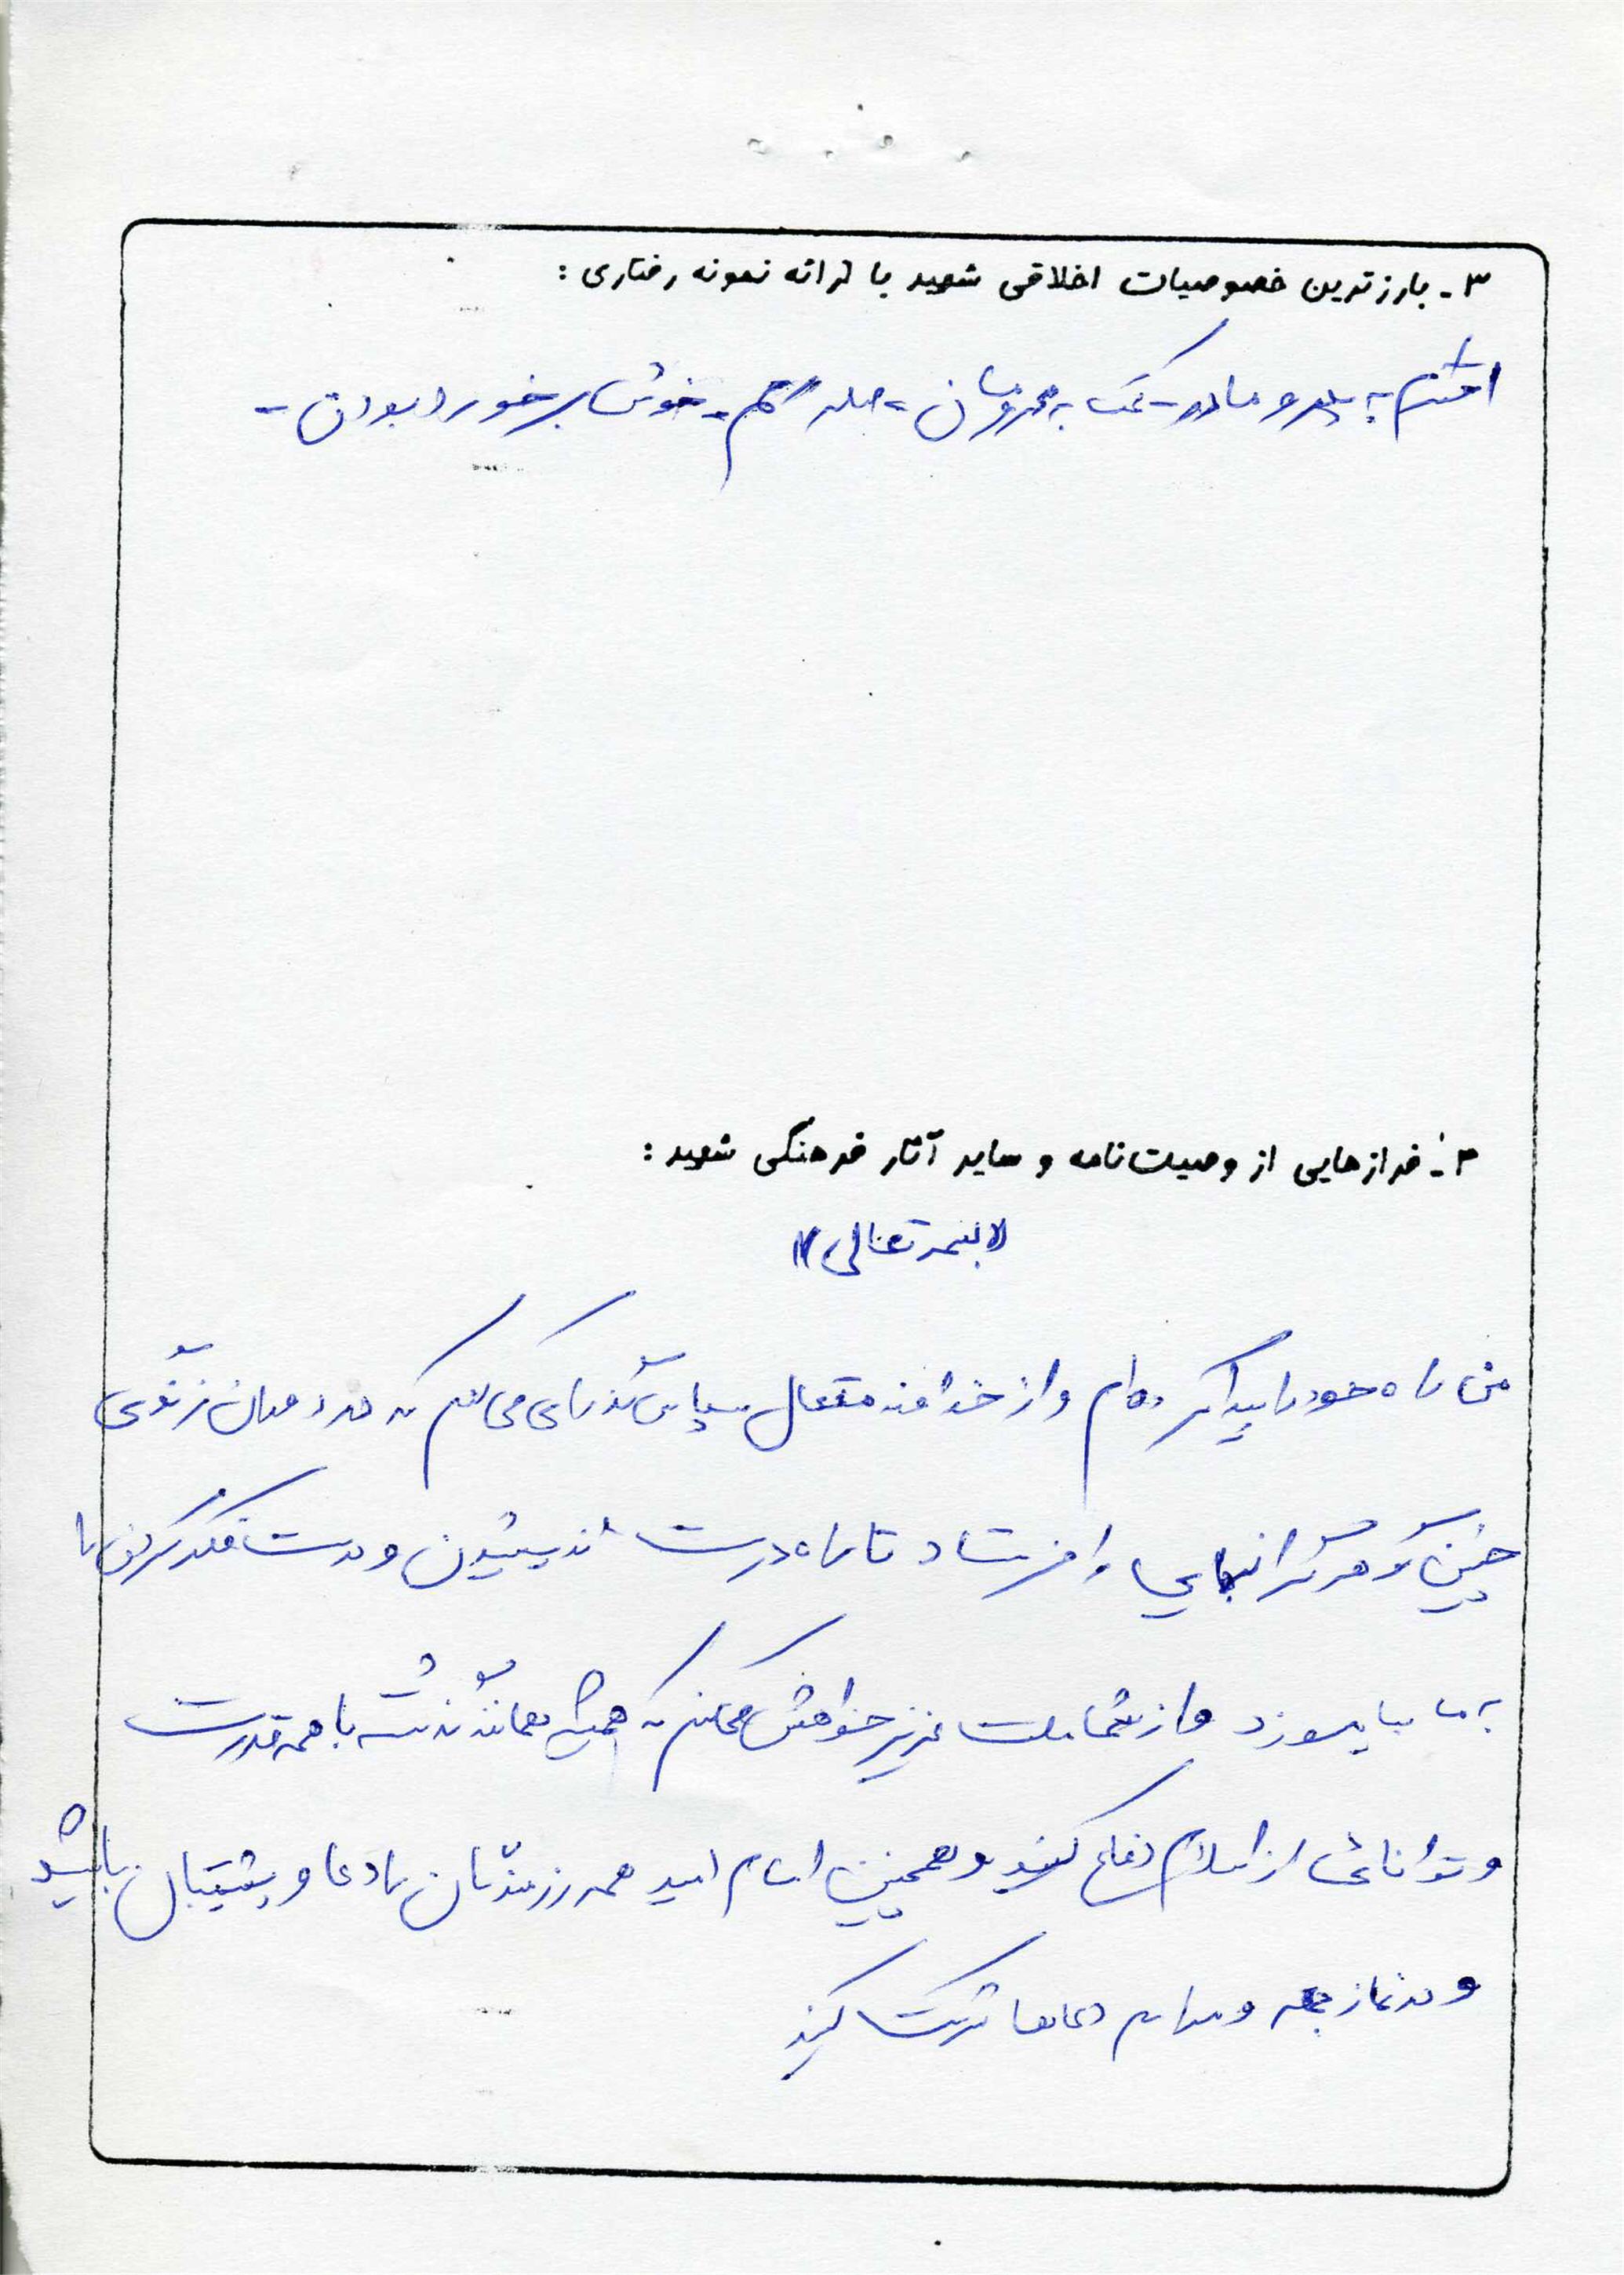 ۳- بارزترین خصوصیات اخلاقی شهید با ارائه نمونه رفتاری :
احترام به پدر و مادر - کمک به محرومان - صله رحم - خوش برخورد بودن -
۴- فرازهایی از وصیت‌نامه و سایر آثار فرهنگی شهید :
«بسمه تعالی»
من راه خود را پیدا کرده‌ام و از خداوند متعال سپاس گذاری می کنم که در میان
چنین گوهر گرانبهایی را فرستاد تا راه درست اندیشیدن و درست فکر کردن را
به ما بیاموزد و از شما ملت عزیز خواهش میکنم که همیشه همانند گذشته با همه قدرت
و توانائی از اسلام دفاع کنید و همچنین امام امید همه رزمندگان را دعا و پشتیبان باشید
و در نماز جمعه و مراسم دعاها شرکت کنید